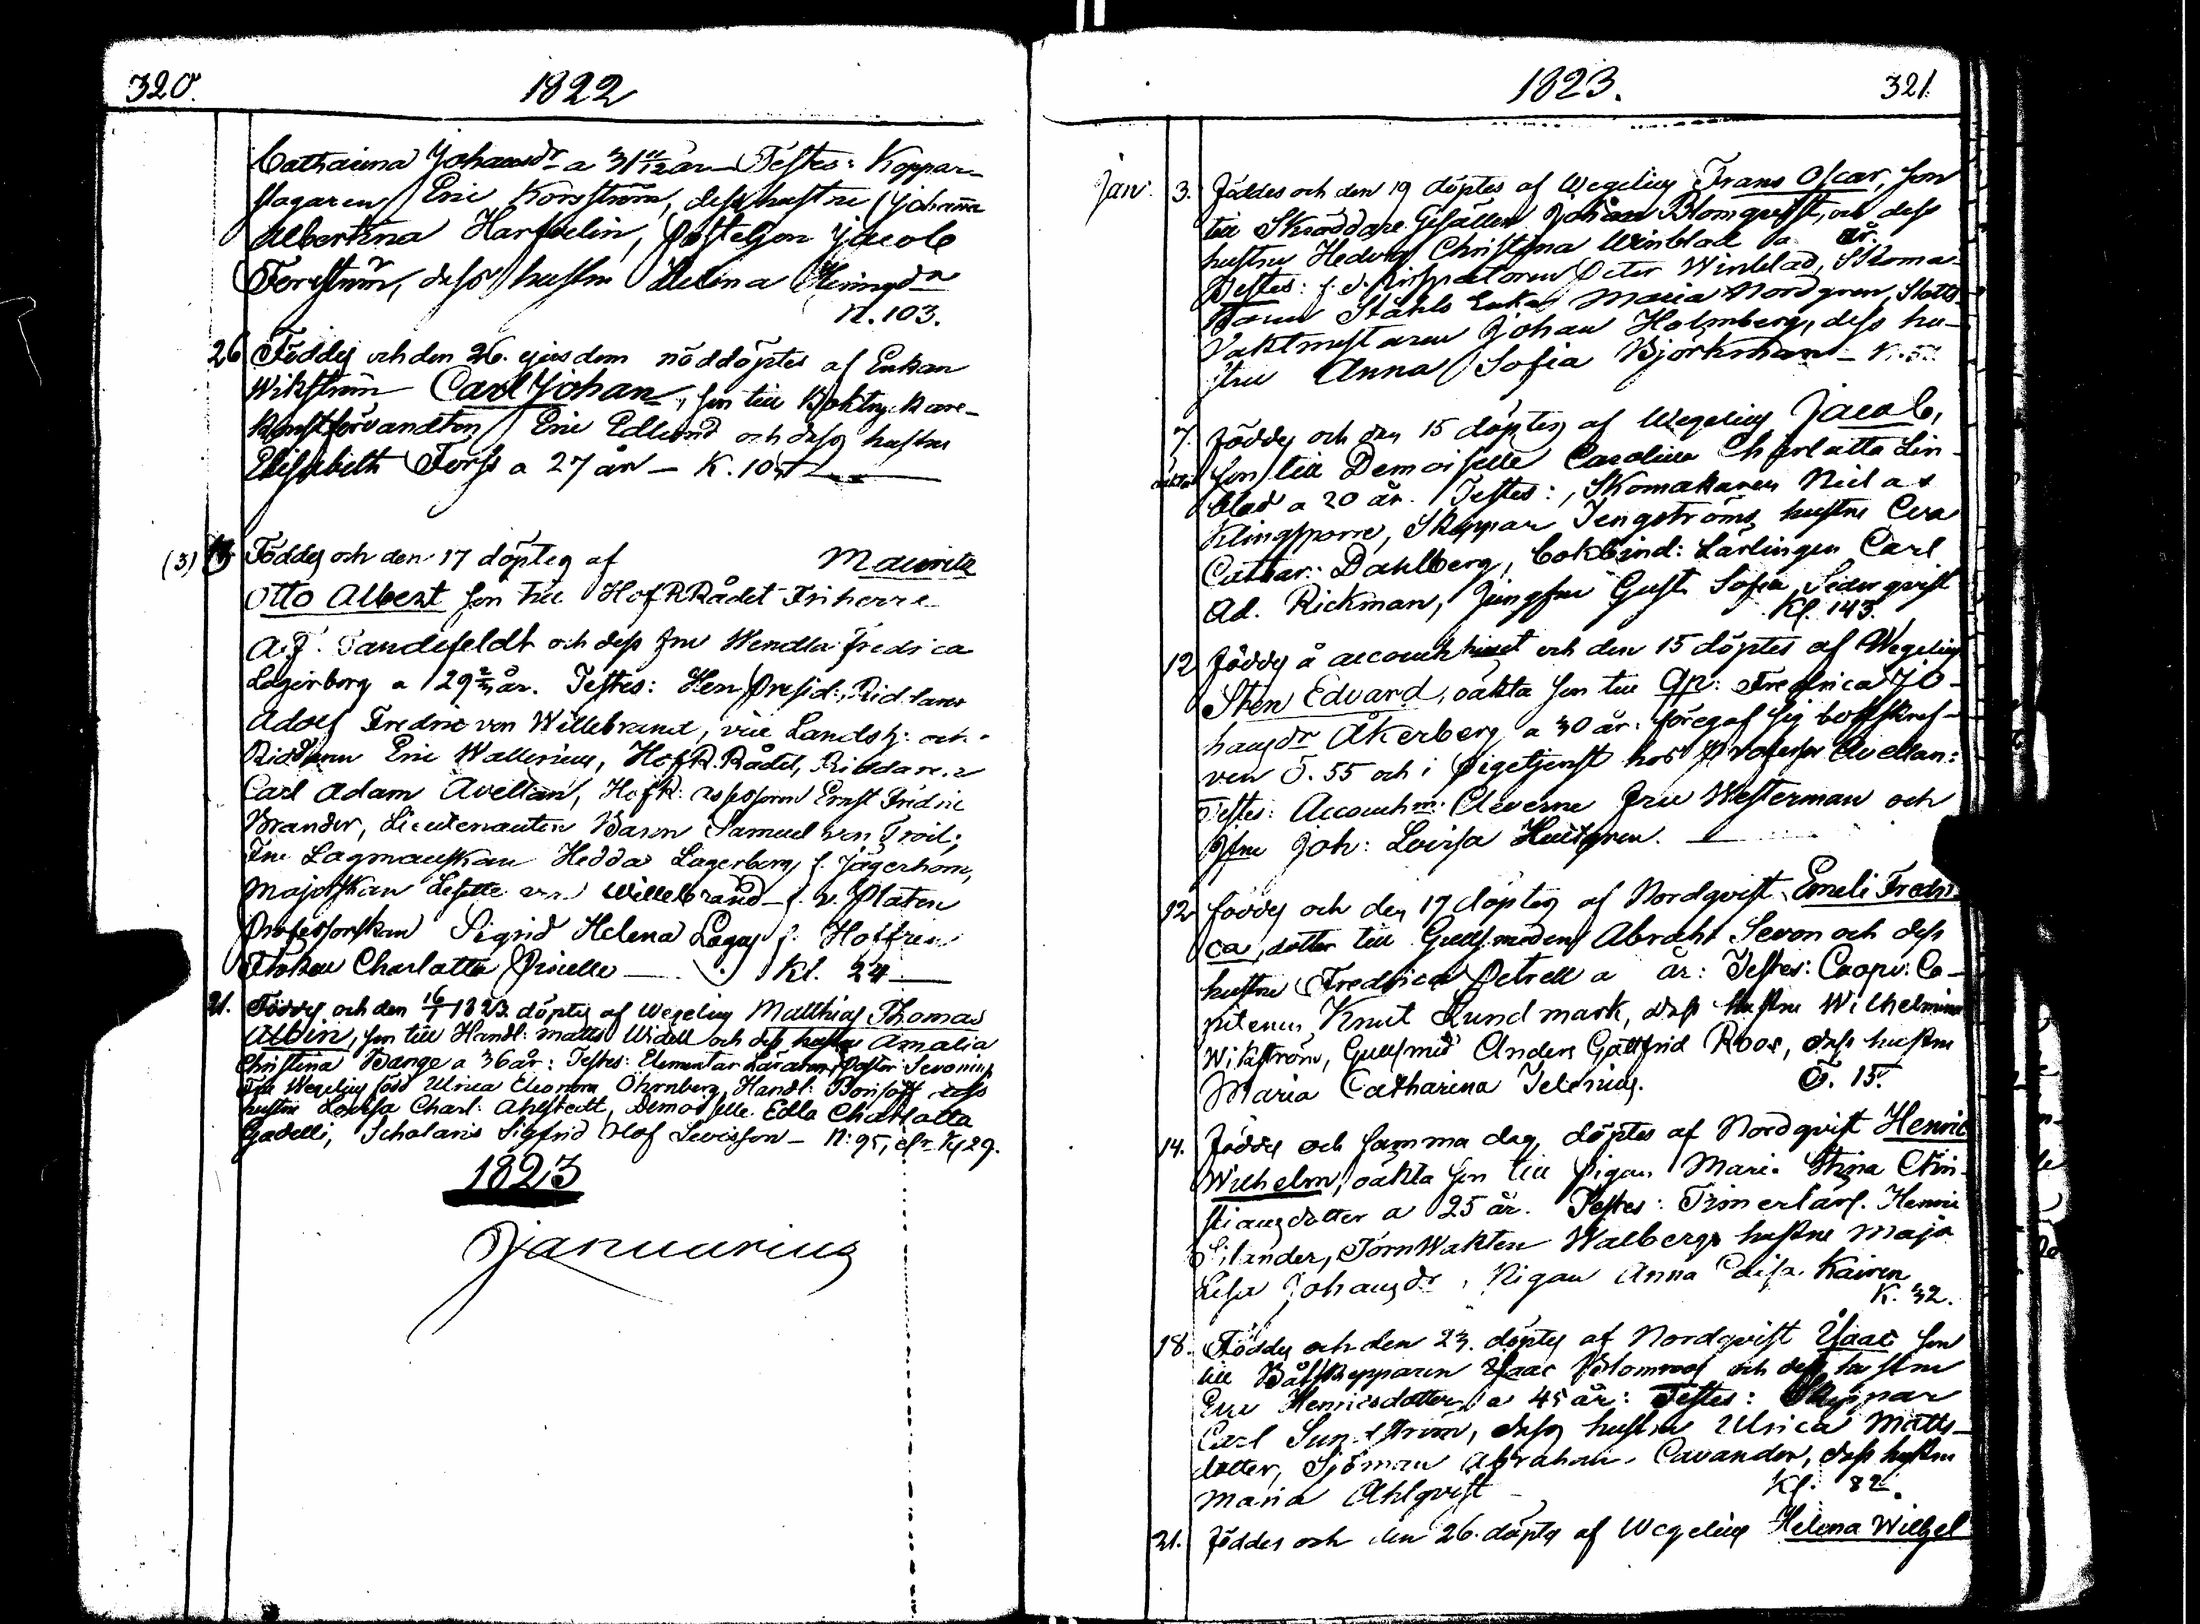 320.
1822
Catharina Johansdr a 31 11/12 år — Testes: Koppar-
slagaren Eric Korsström, dess hustru Johanna
Albertina Harthelin, Jacob
dess hustru Helena Heningsdr
N. 103.
26 Föddes och den 26. ejusdem nöddöptes af Enkan
Wikström Carl Johan, son till Boktryckare-
konstförvandten Eric Edlund och dess hustru
Elisabeth Forss a 27 år — K. 105
(3) Föddes och den 17 döptes af Mauritz
Otto Albert son till HofRRådet Friherre
A. F. Tandefeldt och dess fru Wendla Fredrica
Lagerborg a 29 år. Testes: Herr Presid:, Riddaren
Adolf Fredric von Willebrand, vice Landsh: och
Riddaren Eric Wallerius, HofR.Rådet, Riddaren
Carl Adam Avellan, HofR: Assessoren Ernst Fredric
Brander, Lieutenanten Baron Samuel von Troil;
Fru Lagmanskan Hedda Lagerborg f. Jägerhorn,
Majorskan Lisette von Willebrand f. v. Platen
Professorskan Sigrid Helena Lagus f. Hoffren
Fröken Charlotta — Kl. 24 —
21. Föddes och den 16/1 1823 döptes af Wegelius Matthias Thomas
Albin, son till Handl: Matts Widell och dess hustru Amalia
Christina Bange a 36 år: Testes: Elementar Läraren, Pastor Sevonius
Fru Wegelius född Ulrica Eleonora Öhrnberg, Handl: Borisoff dess
hustru Lovisa Charl: Ahlstedt, Demoiselle Edla Charlotta
Gadelli, Scholaris Sigfrid Olof Levisson — N: 95, Kl 29.
1823
Januarius
1823.
321.
Jan: 3. Föddes och den 19 döptes af Wegelius Frans Oscar, son
till Skräddare Gesällen Johan Blomqvist, och dess
hustru Hedvig Christina Winblad a år.
Testes: f. d. Peter Winblad, Skoma-
karen Ståhls Enka Maria Nordgren, Slotts-
Vaktmestaren Johan Holmberg, dess hu-
stru Anna Sofia Björkman — K. 5
7. Föddes och den 15 döptes af Wegelius Jacob,
oäkta son till Demoiselle Carolina Charlotta Lin-
blad a 20 år. Testes:, Skomakaren Niclas
Klingsporre, Skeppar Tengströms hustru Eva
Cathar: Dahlberg, Bokbind: Lärlingen Carl
Ad. Rickman, Jungfru Gust. Sofia Sederqvist
Kl. 143.
12 Föddes å accouch huset och den 15 döptes af Wegelius
Sten Edvard, oäkta son till Qp: Fredrica Jo-
hansdr Åkerberg a 30 år: föregaf sig bokskref-
ven Ö. 55 och i Pigetjenst hos Professor Avellan:
Testes: Accouchm: Eleverne fru Westerman och
Jfru Joh: Lovisa Hultgren. —
12 Föddes och den 17 döptes af Nordqvist Emeli Fredri-
ca, dotter till Gullsmeden Abraht Sevon och dess
hustru Fredrica Petrell a år: Testes: Coopv: Ca-
pitenen Knut Lundmark, dess hustru Wilhelmina
Wikström, Gullsmed Anders Gottfrid Roos, dess hustru
Maria Catharina Idenius. Ö. 15.
14. Föddes och samma dag döptes af Nordqvist Henric
Wilhelm, oäkta son till Pigan Maria Stina Chri-
stiansdotter a 25 år. Testes: Timerkarl. Henric
Silander, TornWakten Walbergs hustru Maja
Lisa Johansdr, Pigan Anna Caisa Kairen
K. 32.
18. Föddes och den 23. döptes af Nordqvist Isaac son
till Båtskepparen Isaac Blomroos och dess hustru
Eva Henricsdotter a 45 år: Testes: Skeppar
Carl Sundström, dess hustru Ulrica Matts-
dotter, Sjöman Abraham Cavander, dess hustru
Maria Ahlqvist — Kl: 82.
21. Föddes och den 26. döptes af Wegelius Helena Wilhel